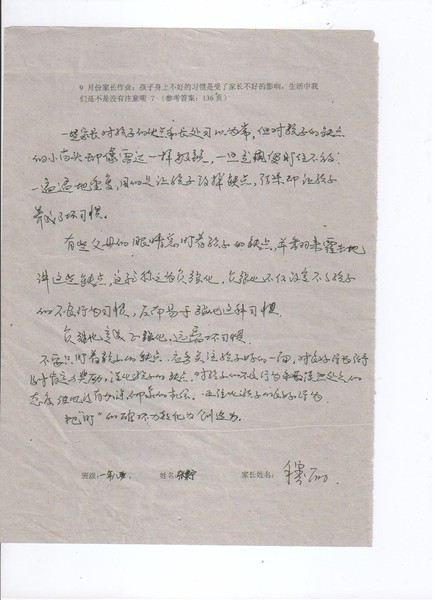 9 月份家长作业：孩子身上不好的习惯是受了家长不好的影响，生活中我
们是不是没有注意呢 ？（参考答案：136 页）
一些家长对孩子的优点和长处习以为常，但对孩子的缺点
的小苗头却像雷达一样敏锐，一旦发现便盯住不放
一遍遍地重复，目的是让孩子改掉缺点，结果却让孩子
养成了坏习惯。
有些父母的眼睛总盯着孩子的缺点，并翻来覆去地
讲这些缺点，这就称之为负强化，负强化不仅改变不了孩子
的不良行为习惯，反而易于强化这种习惯。
负强化
不要只盯着孩子的缺点，应多关注孩子好的一面，对良好行为给予
及时肯定与奖励，淡化孩子的缺点，对孩子的不良行为
态度
把"盯"的破坏力转化为创造力。
班级：一年八班 姓名： 家长姓名：